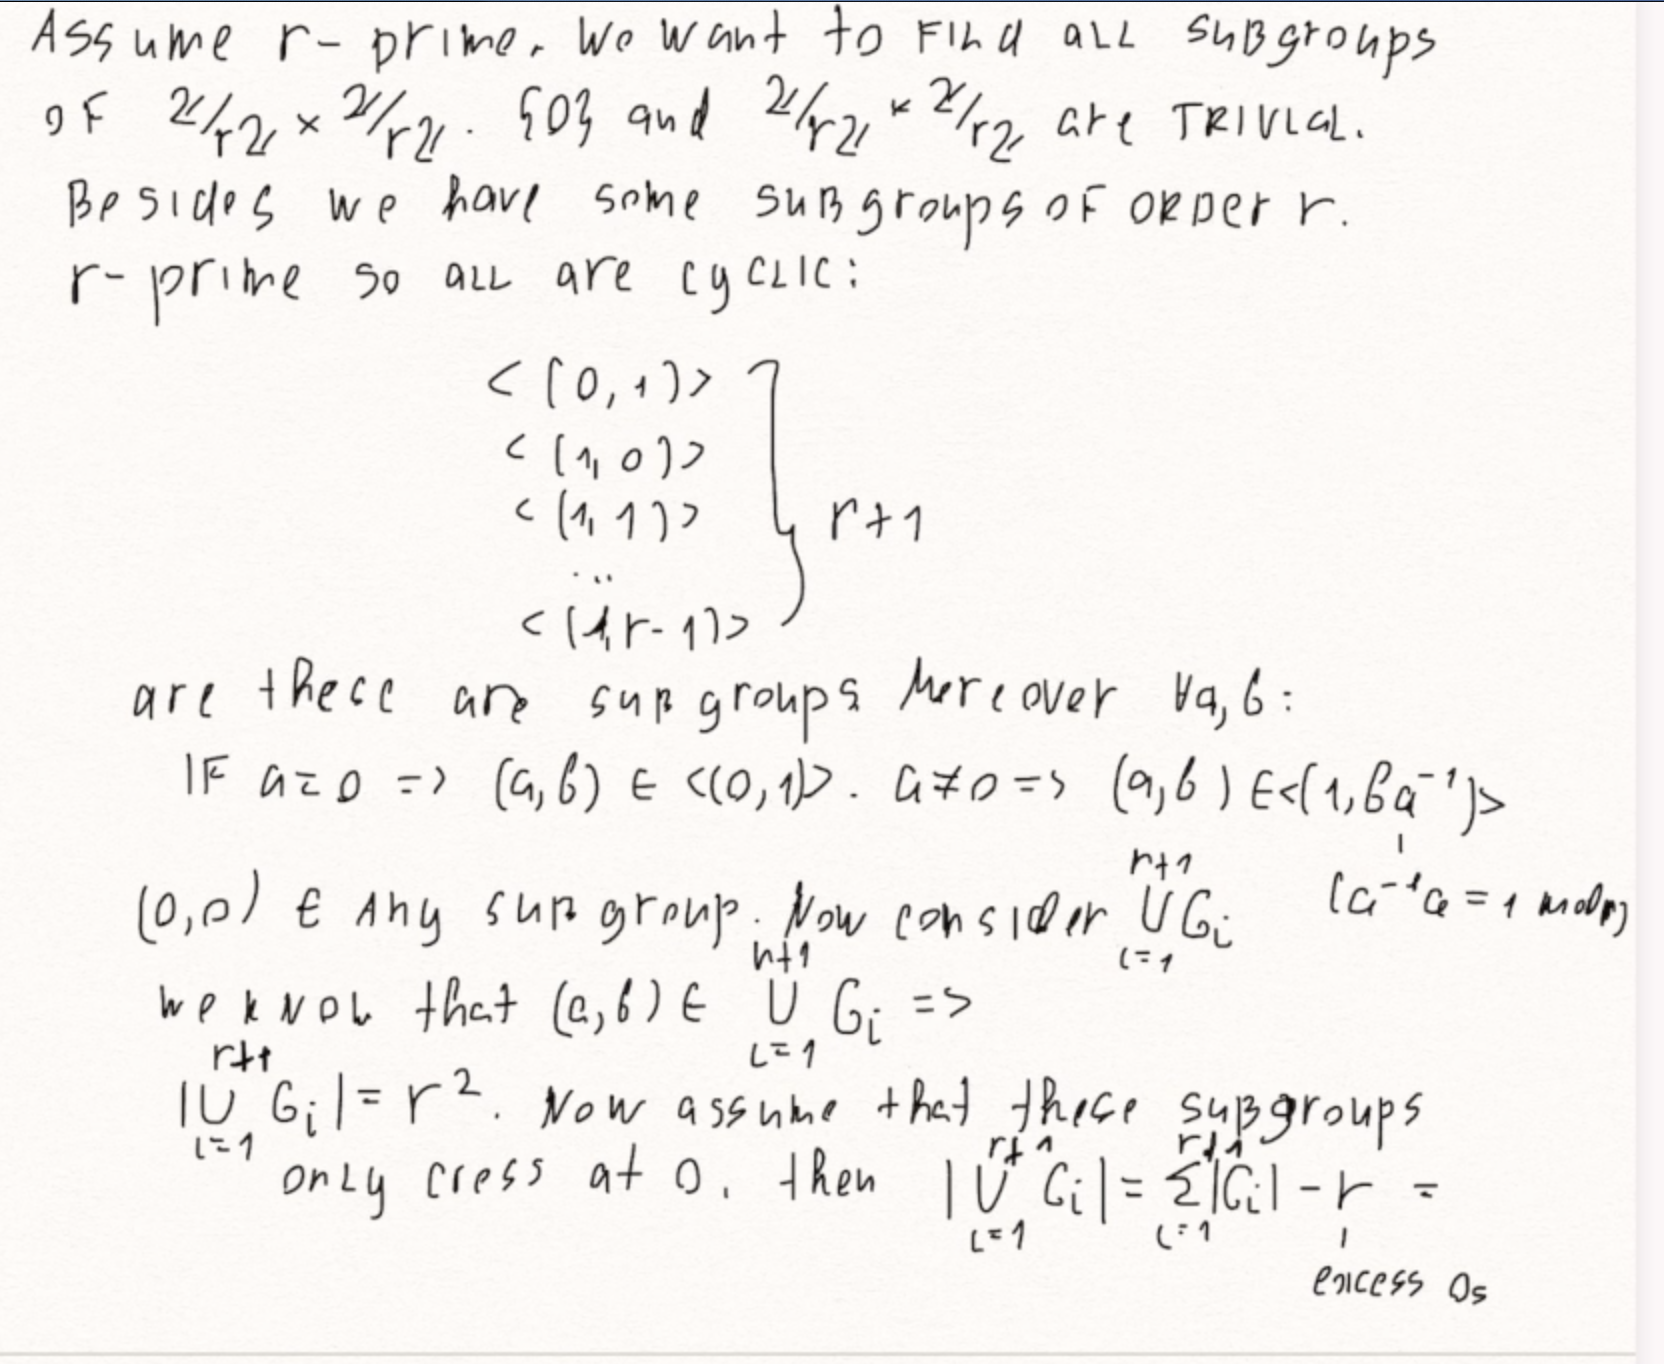 Assume r- prime. We want to FINd aLL suBgroups
OF ℤ/rℤ × ℤ/rℤ. {0} and ℤ/rℤ × ℤ/rℤ are TRIVIaL.
Besides we have some suBgroups OF ORDer r.
r-prime so aLL are cyCLIC:
< (0,1)>
< (1,0)>
< (1,1)> r+1
...
< (1,r-1)>
are these are subgroups Moreover ∀a,b:
IF a=0 => (a,b) ∈ <(0,1)>. a≠0 => (a,b) ∈<(1,ba⁻¹)>
(0,0) ∈ Any subgroup. Now consider ⋃_{i=1}^{r+1} G_i (a⁻¹a = 1 mod r)
we know that (a,b) ∈ ⋃_{i=1}^{n+1} G_i =>
|⋃_{i=1}^{r+1} G_i| = r². Now assume that these subgroups
onLy cress at 0. then |⋃_{i=1}^{r+1} G_i| = Σ_{i=1}^{r+1} |G_i| - r =
excess 0s